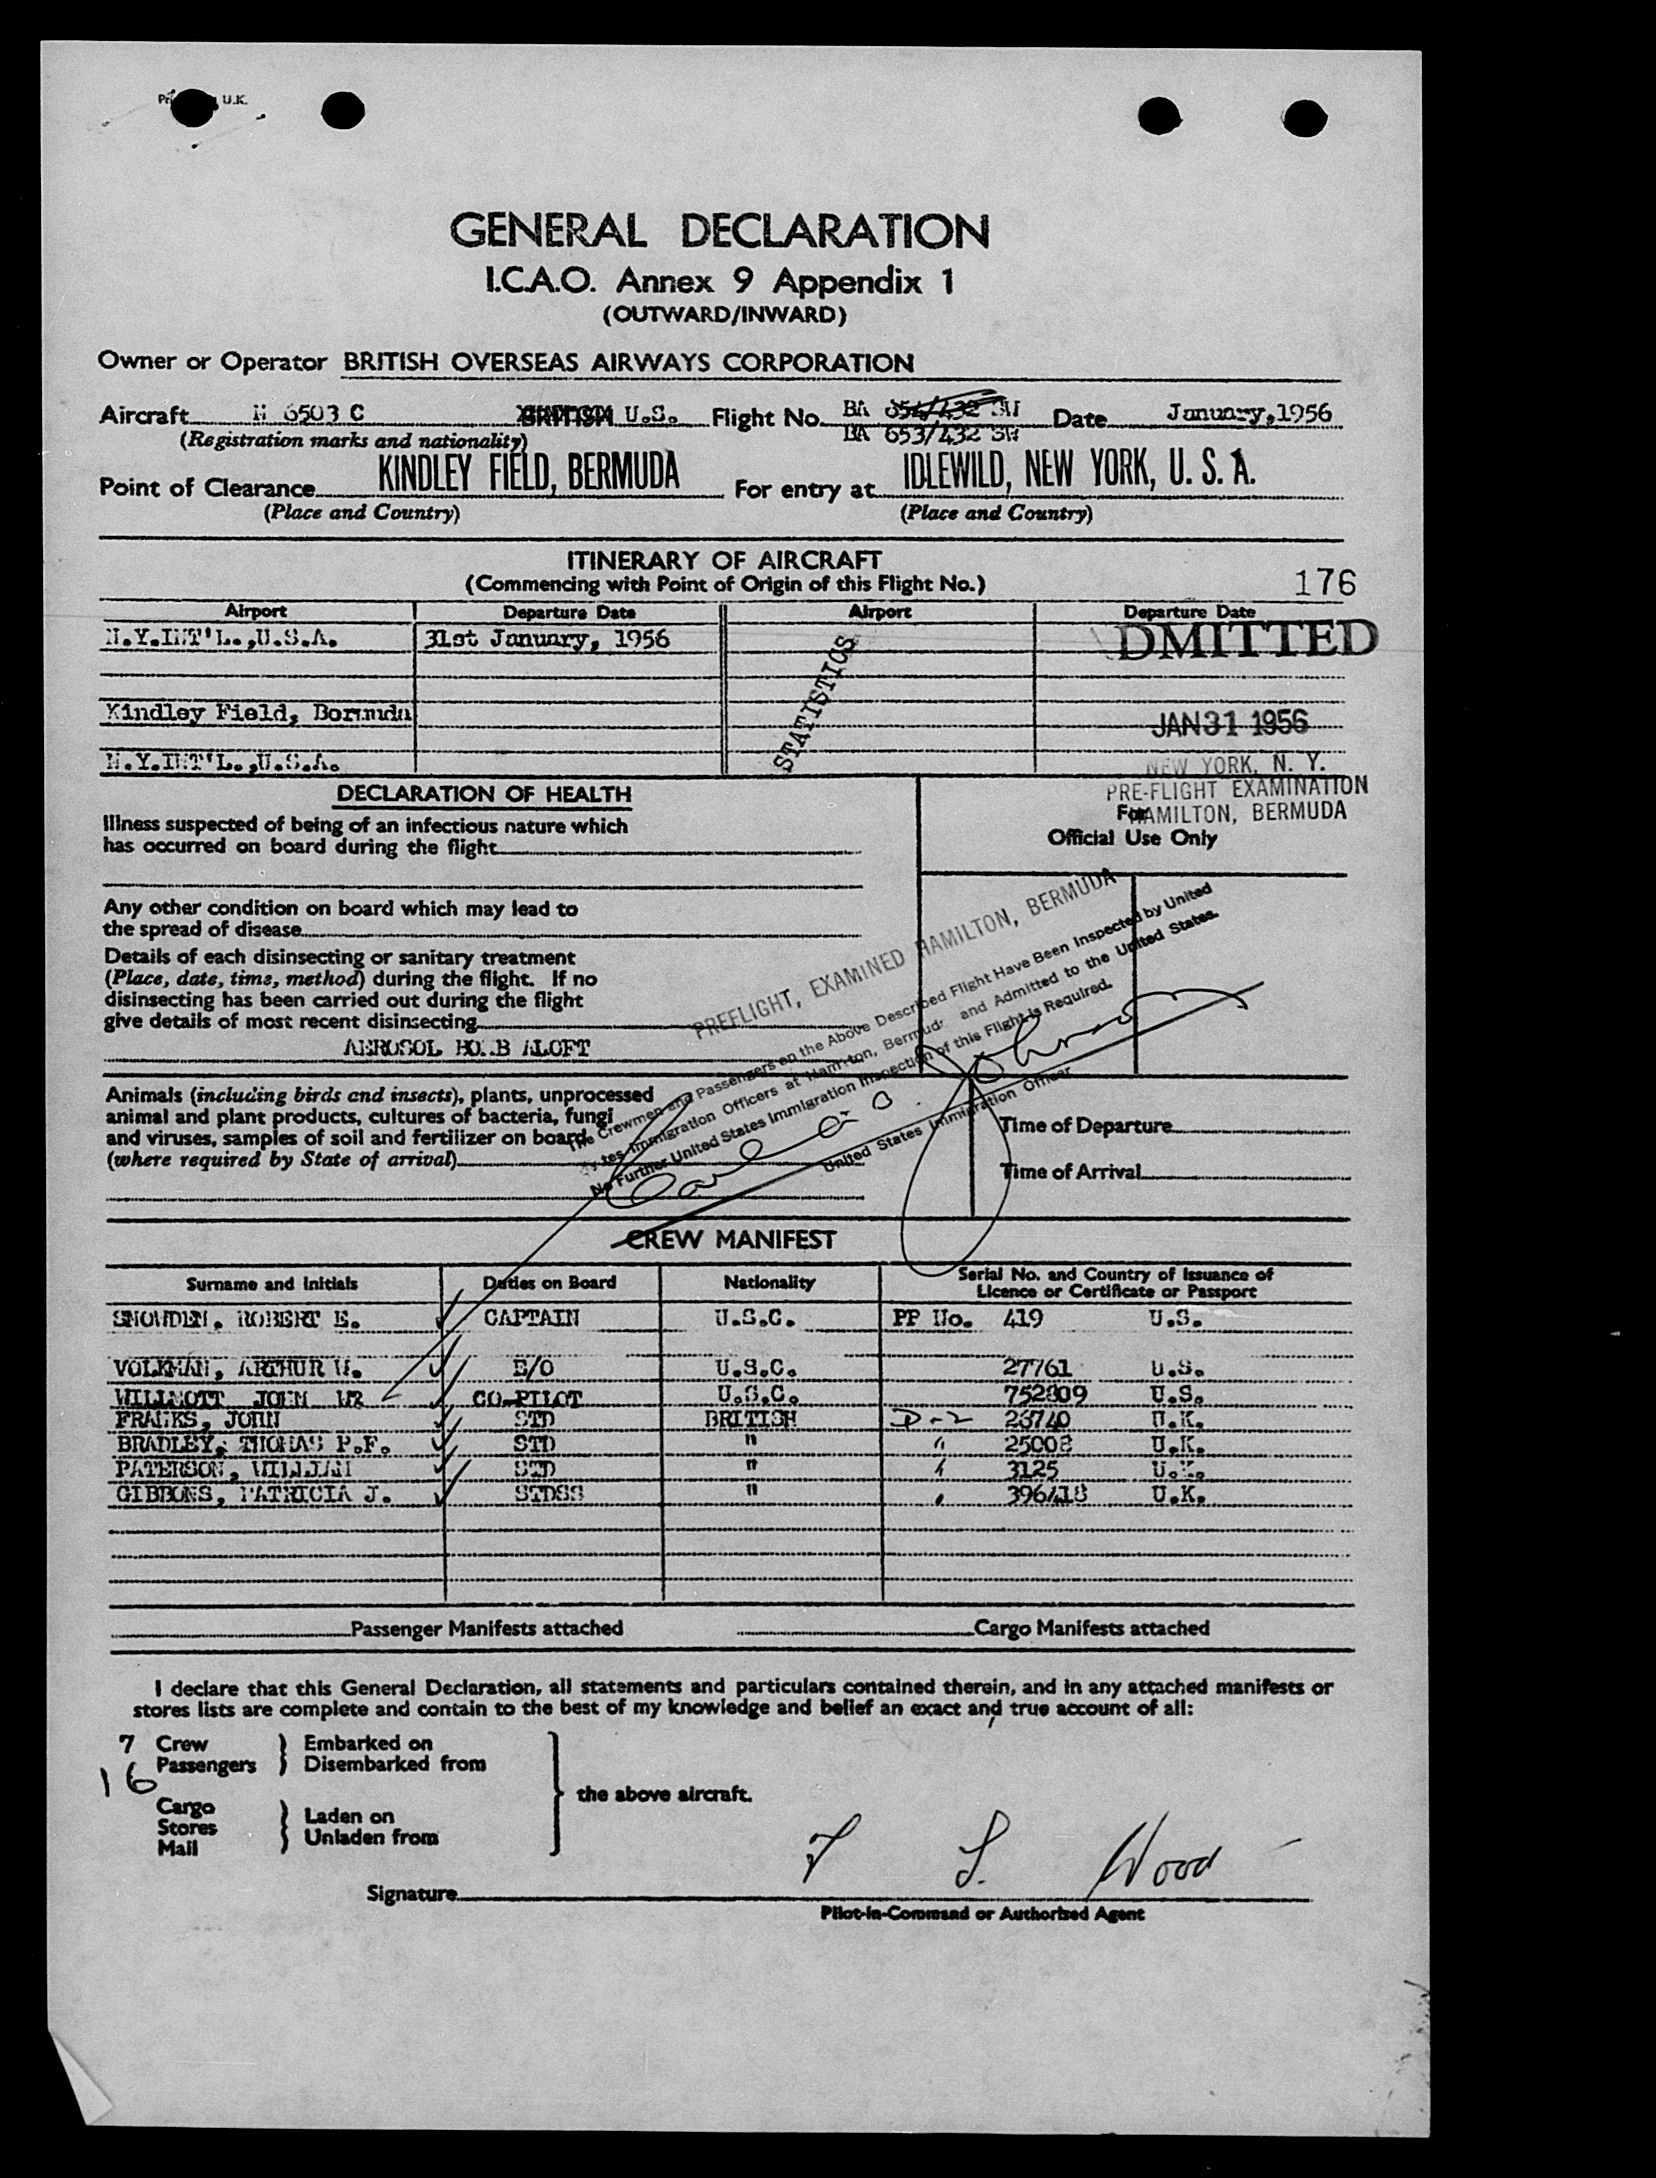 U.K.
GENERAL DECLARATION
I.C.A.O. Annex 9 Appendix 1
(OUTWARD/INWARD)
Owner or Operator BRITISH OVERSEAS AIRWAYS CORPORATION
Aircraft N 6503 C BRITISH U.S. Flight No. BA 654/432 SW Date January,1956
(Registration marks and nationality) BA 653/432 SW
Point of Clearance KINDLEY FIELD, BERMUDA For entry at IDLEWILD, NEW YORK, U. S. A.
(Place and Country) (Place and Country)
ITINERARY OF AIRCRAFT
(Commencing with Point of Origin of this Flight No.) 176
Airport Departure Date Airport Departure Date
N.Y.INT'L.,U.S.A. 31st January, 1956 DMITTED
STATISTICS
Kindley Field, Bermuda JAN 31 1956
N.Y.INT'L.,U.S.A. NEW YORK, N. Y.
PRE-FLIGHT EXAMINATION
HAMILTON, BERMUDA
DECLARATION OF HEALTH For
Official Use Only
Illness suspected of being of an infectious nature which
has occurred on board during the flight
Any other condition on board which may lead to
the spread of disease
Details of each disinsecting or sanitary treatment
(Place, date, time, method) during the flight. If no
disinsecting has been carried out during the flight
give details of most recent disinsecting
AEROSOL BOMB ALOFT
PREFLIGHT, EXAMINED HAMILTON, BERMUDA
The Crewmen and Passengers on the Above Described Flight Have Been Inspected by United
States Immigration Officers at Hamilton, Bermuda and Admitted to the United States.
No Further United States Immigration Inspection of this Flight is Required.
United States Immigration Officer
Animals (including birds and insects), plants, unprocessed
animal and plant products, cultures of bacteria, fungi
and viruses, samples of soil and fertilizer on board
(where required by State of arrival)
Time of Departure
Time of Arrival
CREW MANIFEST
Surname and Initials Duties on Board Nationality Serial No. and Country of Issuance of
Licence or Certificate or Passport
SNOWDEN, ROBERT E. CAPTAIN U.S.C. PP No. 419 U.S.
VOLKMAN, ARTHUR W. E/O U.S.C. 27761 U.S.
WILLMOTT JOHN WR CO-PILOT U.S.C. 752809 U.S.
FRANKS, JOHN STD BRITISH D-2 26740 U.K.
BRADLEY, THOMAS P.F. STD " " 25008 U.K.
PATERSON, WILLIAM STD " " 3125 U.K.
GIBBONS, PATRICIA J. STDSS " " 396418 U.K.
Passenger Manifests attached Cargo Manifests attached
I declare that this General Declaration, all statements and particulars contained therein, and in any attached manifests or
stores lists are complete and contain to the best of my knowledge and belief an exact and true account of all:
7 Crew Embarked on
16 Passengers Disembarked from
the above aircraft.
Cargo Laden on
Stores Unladen from
Mail
Signature Wood
Pilot-in-Command or Authorised Agent